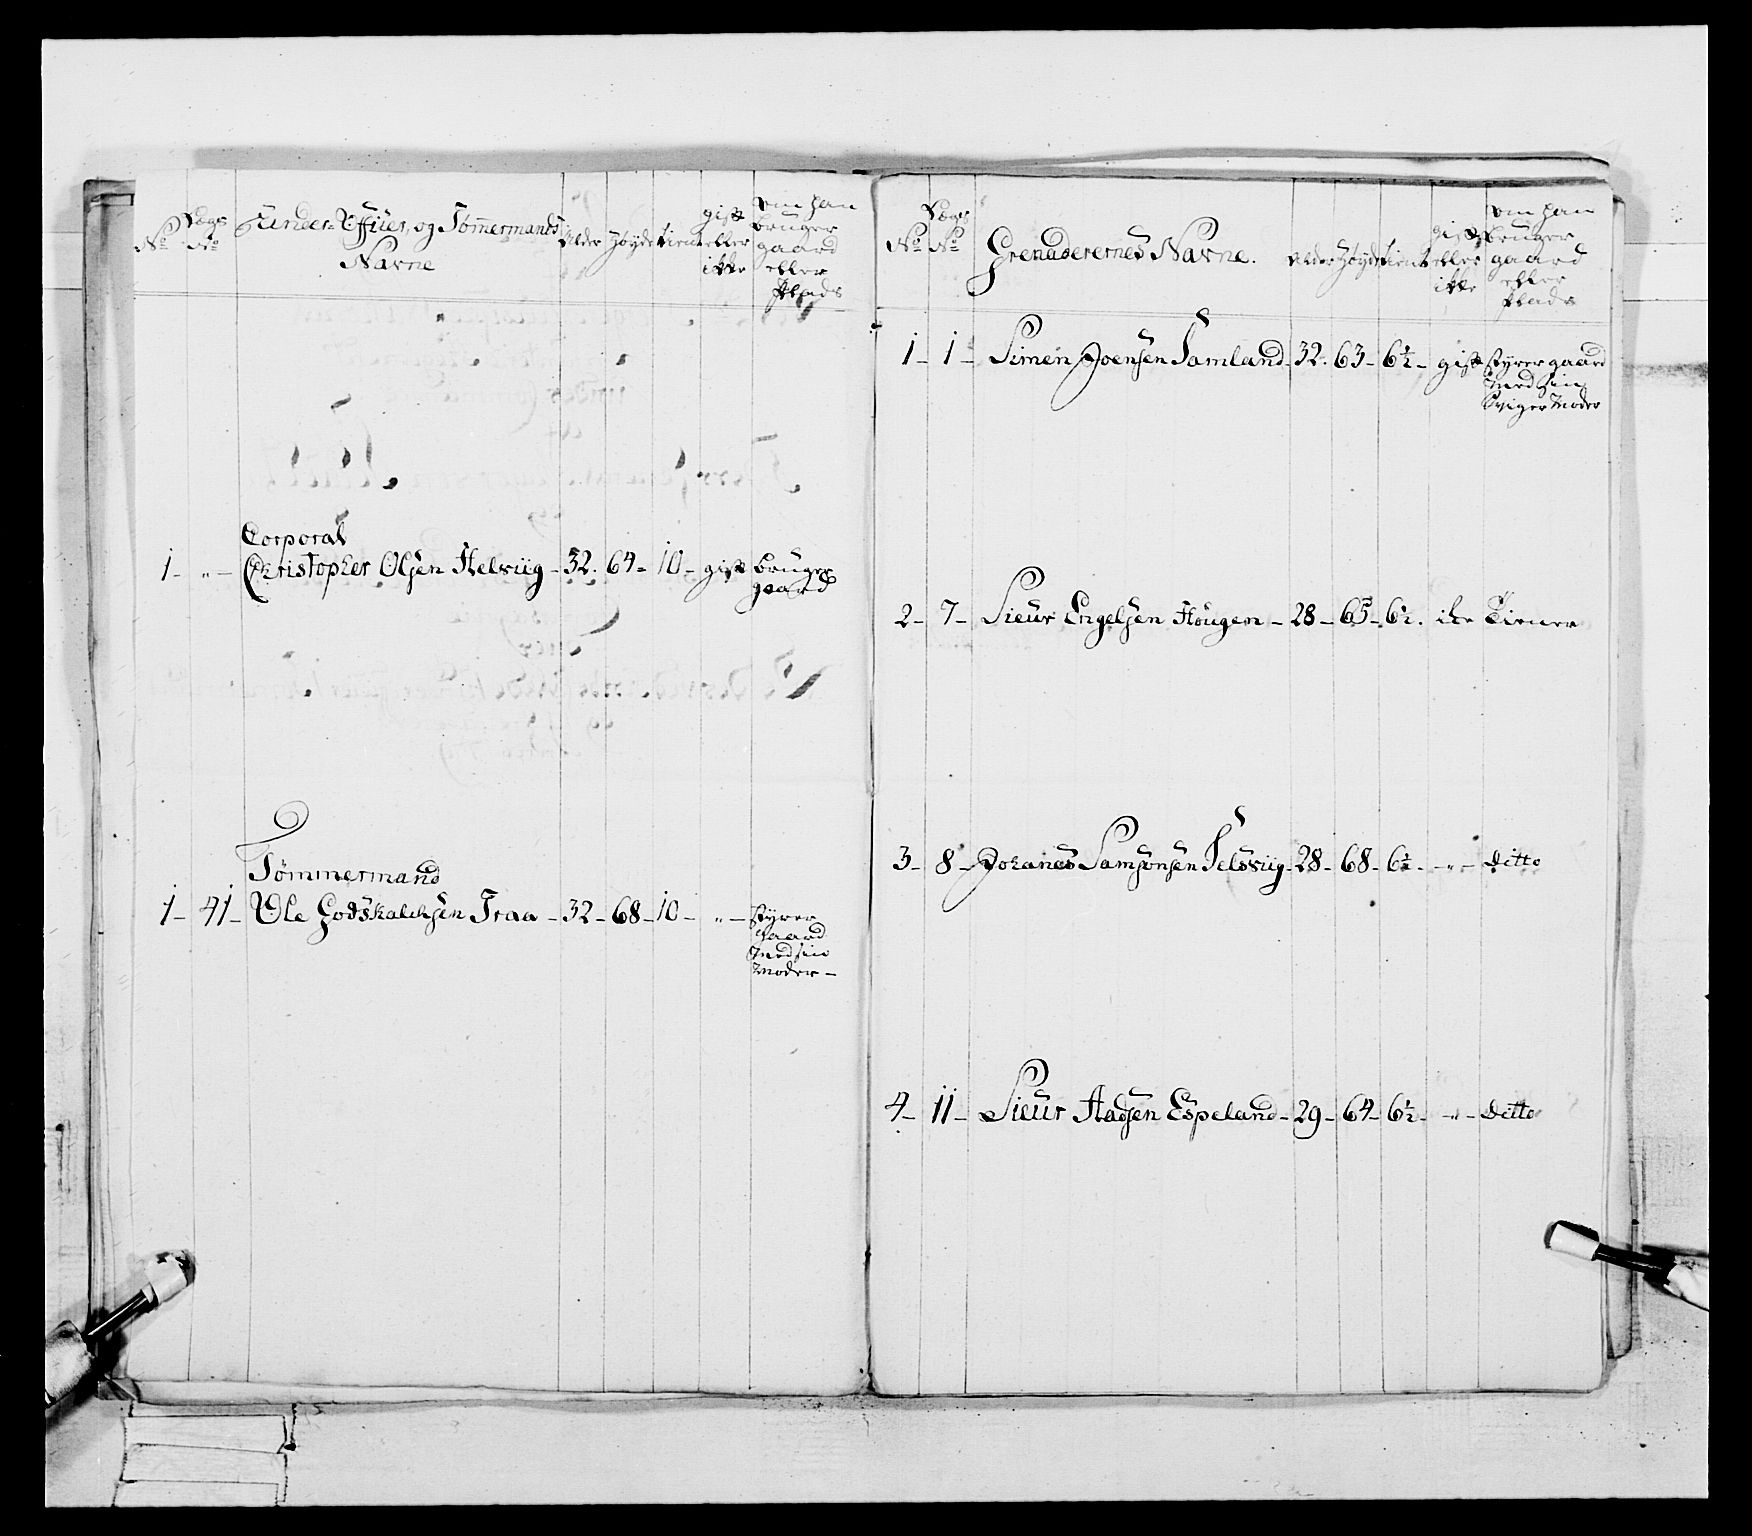 No Lægs No Under-Officier, og Tømmermands Navne Alder Høyde tient gift eller ikke om han bruger gaard eller Plads
Corporal
1 - " - Christopher Olsen Helviig - 32. 64 - 10 - gift bruger
gaard
Tømmermand
1 - 41 - Ole Godskalchsen Traa - 32 - 68 - 10 - " - styrer
gaard
med sin
Moder -
No Lægs No Grenaderernes Navne. Alder Høyde tient gift eller ikke om han bruger gaard eller Plads
1 - 1 - Simen Joensen Samland - 32. 63 - 6½ - gift styrer gaard
med sin
Sviger Moder
2 - 7 - Sieur Engelsen Hougen - 28 - 65 - 6½. ike tiener
3 - 8 - Johanes Samsonsen Selsviig - 28 - 68 - 6½ - " - ditto
4 - 11 - Sieur Aadsen Espeland - 29 - 64 - 6½ - " - ditto